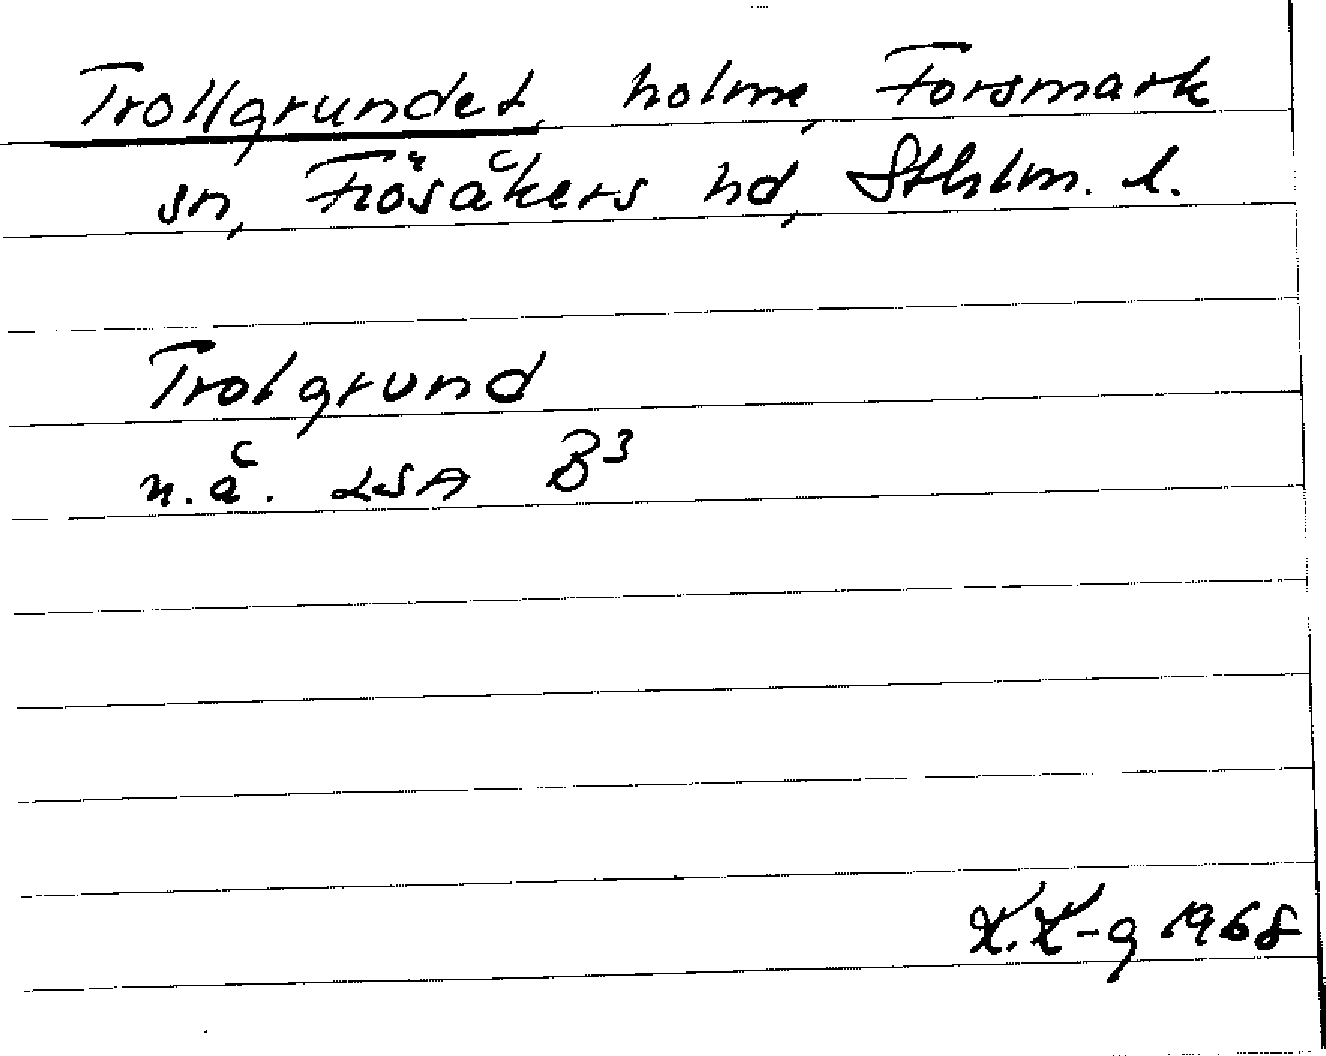 Trollgrundet, holme, Forsmark
sn, Frösåkers hd, Sthlm. l.
Trolgrund
n.å. LSA B3
K.K-g 1968